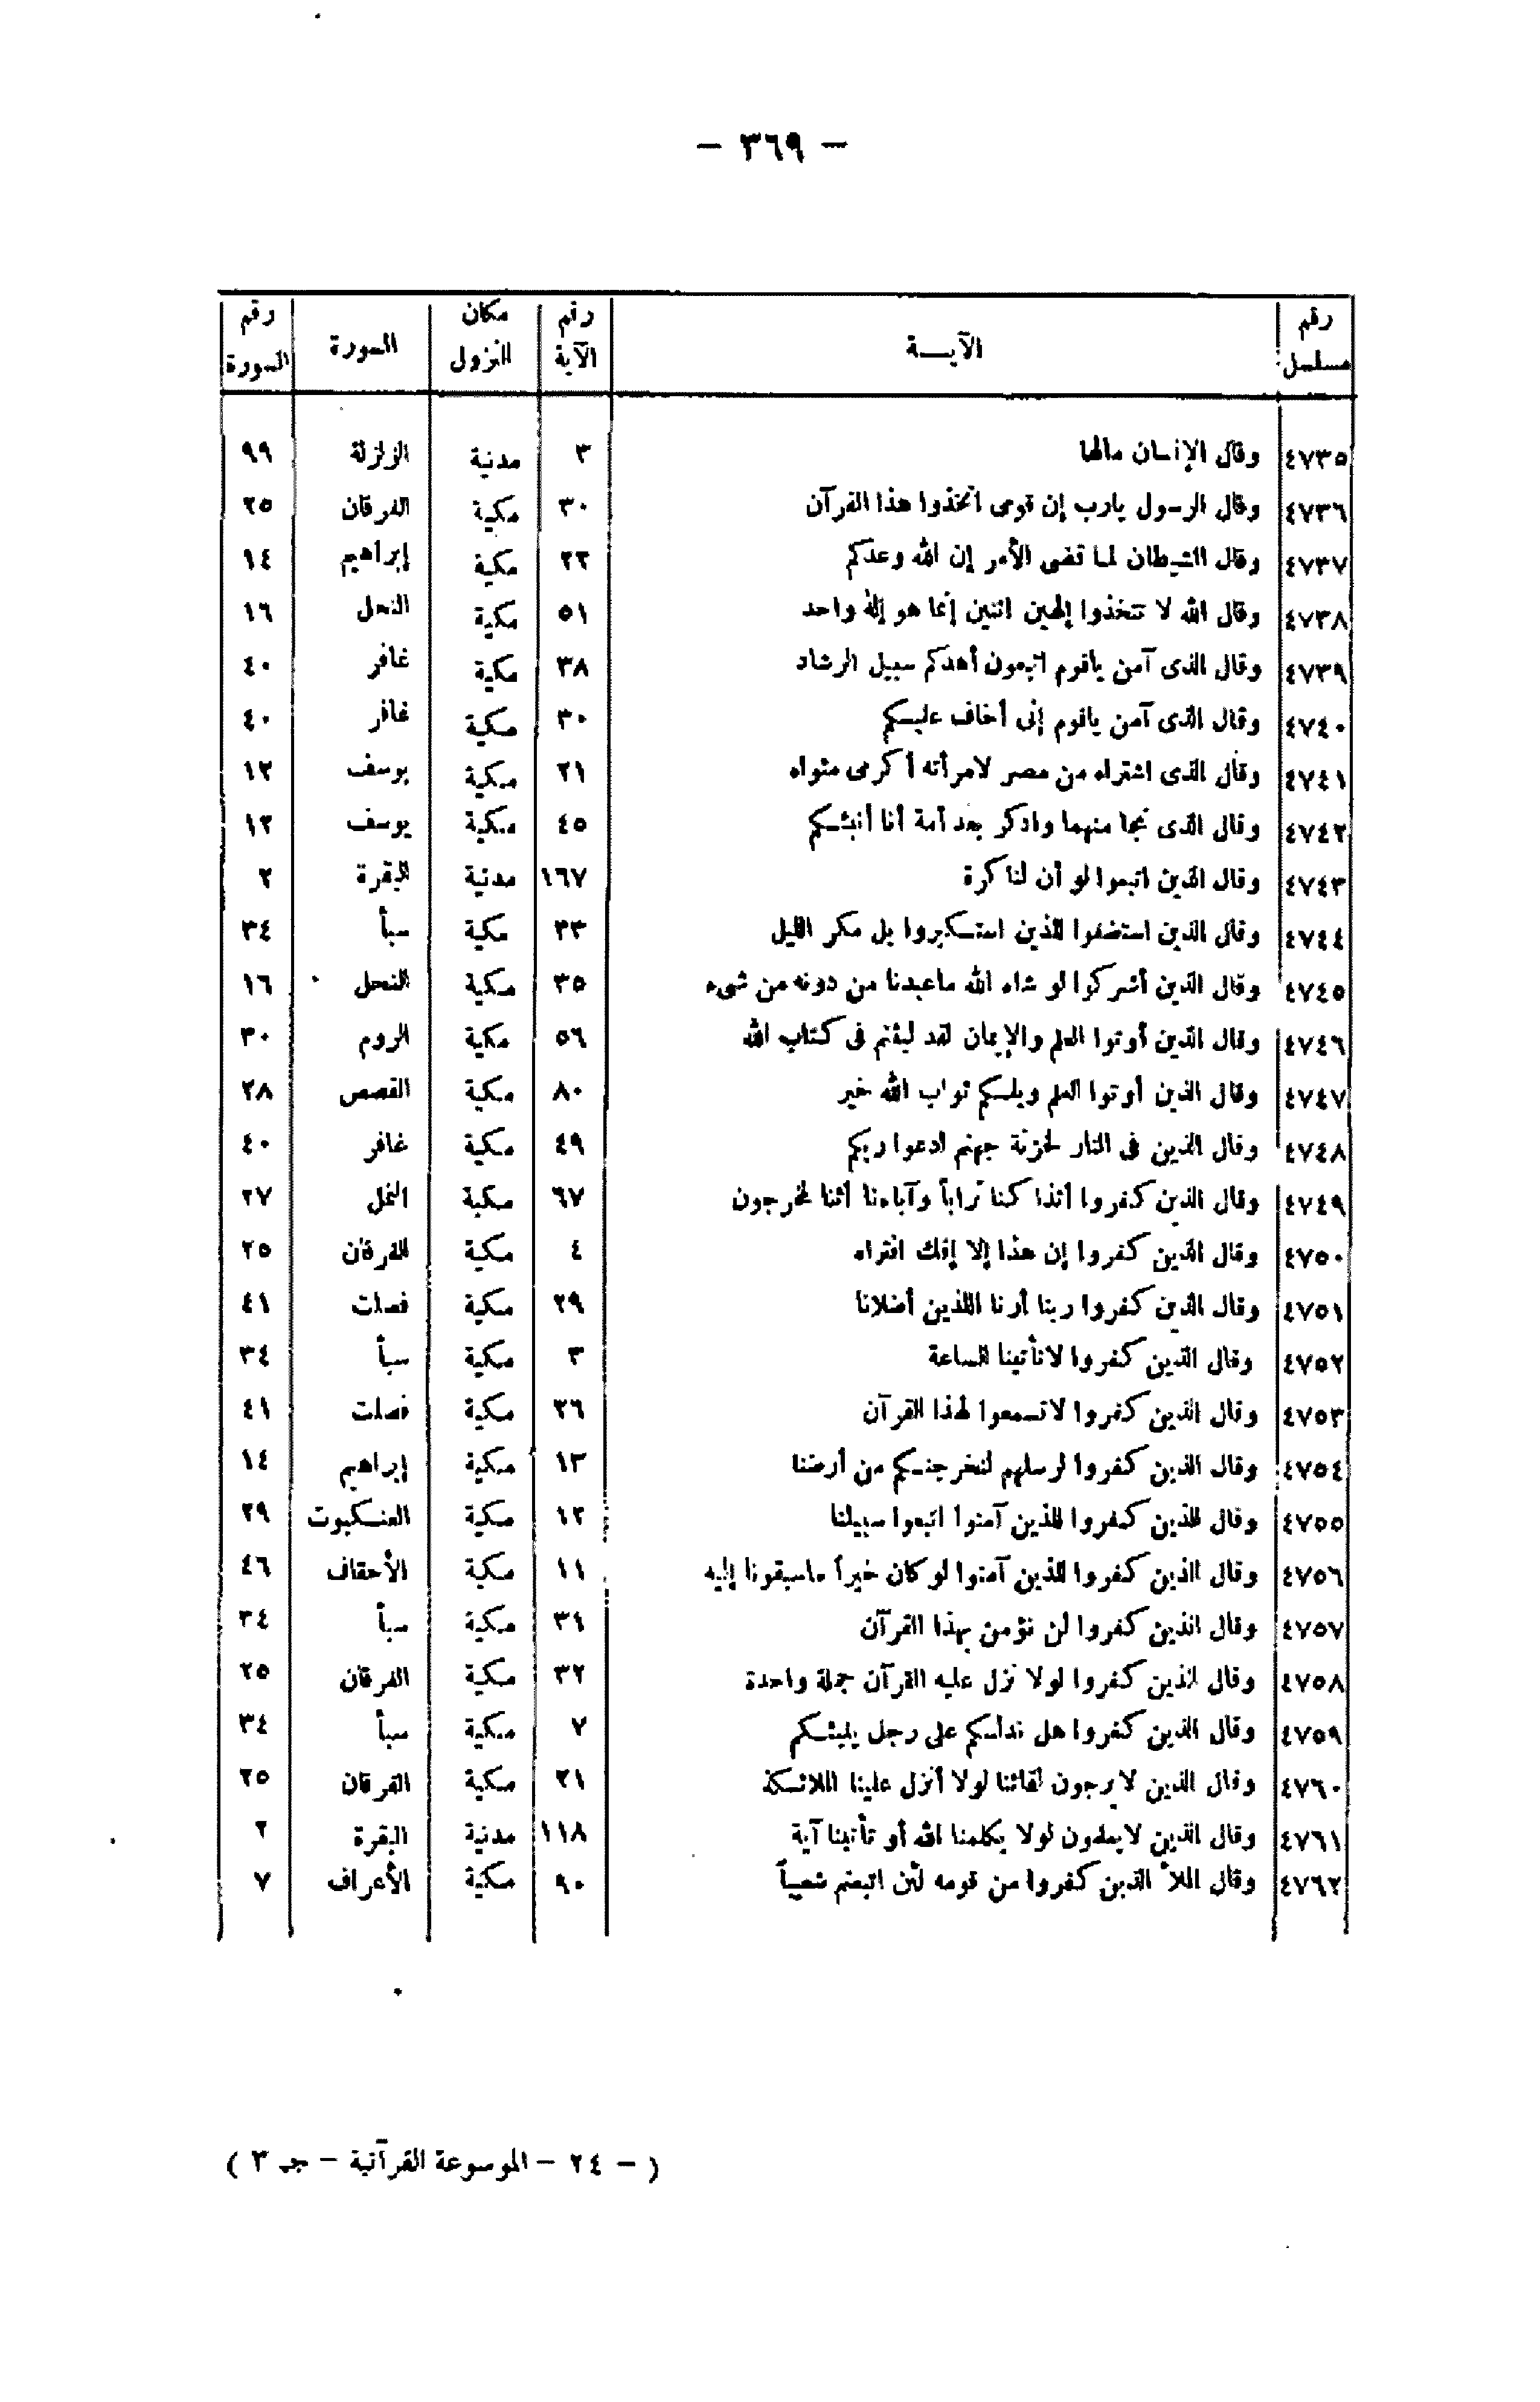 — ٣٦٩ —
رقم مسلسل | الآيــة | رقم الآية | مكان النزول | السورة | رقم السورة
٤٧٣٥ | وقال الإنسان مالها | ٣ | مدنية | الزلزلة | ٩٩
٤٧٣٦ | وقال الرسول يارب إن قومى اتخذوا هذا القرآن | ٣٠ | مكية | الفرقان | ٢٥
٤٧٣٧ | وقال الشيطان لما قضى الأمر إن الله وعدكم | ٢٢ | مكية | إبراهيم | ١٤
٤٧٣٨ | وقال الله لا تتخذوا إلهين اثنين إنما هو إله واحد | ٥١ | مكية | النحل | ١٦
٤٧٣٩ | وقال الذى آمن ياقوم اتبعون أهدكم سبيل الرشاد | ٣٨ | مكية | غافر | ٤٠
٤٧٤٠ | وقال الذى آمن ياقوم إنى أخاف عليكم | ٣٠ | مكية | غافر | ٤٠
٤٧٤١ | وقال الذى اشتراه من مصر لامرأته أكرمى مثواه | ٢١ | مكية | يوسف | ١٢
٤٧٤٢ | وقال الذى نجا منهما وادكر بعد أمة أنا أنبئكم | ٤٥ | مكية | يوسف | ١٢
٤٧٤٣ | وقال الذين اتبعوا لو أن لنا كرة | ١٦٧ | مدنية | البقرة | ٢
٤٧٤٤ | وقال الذين استضعفوا للذين استكبروا بل مكر الليل | ٣٣ | مكية | سبأ | ٣٤
٤٧٤٥ | وقال الذين أشركوا لو شاء الله ماعبدنا من دونه من شىء | ٣٥ | مكية | النحل | ١٦
٤٧٤٦ | وقال الذين أوتوا العلم والإيمان لقد لبثتم فى كتاب الله | ٥٦ | مكية | الروم | ٣٠
٤٧٤٧ | وقال الذين أوتوا العلم ويلكم ثواب الله خير | ٨٠ | مكية | القصص | ٢٨
٤٧٤٨ | وقال الذين فى النار لخزنة جهنم ادعوا ربكم | ٤٩ | مكية | غافر | ٤٠
٤٧٤٩ | وقال الذين كفروا أئذا كنا تراباً وآباءنا أئنا لمخرجون | ٦٧ | مكية | النمل | ٢٧
٤٧٥٠ | وقال الذين كفروا إن هذا إلا إفك افتراه | ٤ | مكية | الفرقان | ٢٥
٤٧٥١ | وقال الذين كفروا ربنا أرنا اللذين أضلانا | ٢٩ | مكية | فصلت | ٤١
٤٧٥٢ | وقال الذين كفروا لاتأتينا الساعة | ٣ | مكية | سبأ | ٣٤
٤٧٥٣ | وقال الذين كفروا لاتسمعوا لهذا القرآن | ٢٦ | مكية | فصلت | ٤١
٤٧٥٤ | وقال الذين كفروا لرسلهم لنخرجنكم من أرضنا | ١٣ | مكية | إبراهيم | ١٤
٤٧٥٥ | وقال الذين كفروا للذين آمنوا اتبعوا سبيلنا | ١٢ | مكية | العنكبوت | ٢٩
٤٧٥٦ | وقال الذين كفروا للذين آمنوا لوكان خيراً ماسبقونا إليه | ١١ | مكية | الأحقاف | ٤٦
٤٧٥٧ | وقال الذين كفروا لن نؤمن بهذا القرآن | ٣١ | مكية | سبأ | ٣٤
٤٧٥٨ | وقال الذين كفروا لولا نزل عليه القرآن جملة واحدة | ٣٢ | مكية | الفرقان | ٢٥
٤٧٥٩ | وقال الذين كفروا هل ندلكم على رجل ينبئكم | ٧ | مكية | سبأ | ٣٤
٤٧٦٠ | وقال الذين لا يرجون لقائنا لولا أنزل علينا الملائكة | ٢١ | مكية | الفرقان | ٢٥
٤٧٦١ | وقال الذين لايعلمون لولا يكلمنا الله أو تأتينا آية | ١١٨ | مدنية | البقرة | ٢
٤٧٦٢ | وقال الملأ الذين كفروا من قومه لئن اتبعتم شعيباً | ٩٠ | مكية | الأعراف | ٧
( — ٢٤ — الموسوعة القرآنية — جـ ٣ )